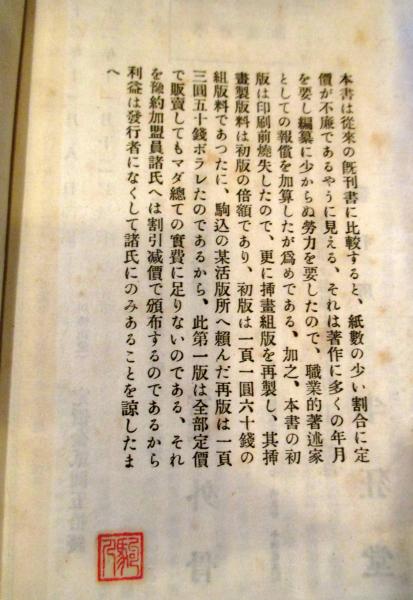 本書は從來の旣刊書に比較すると、紙數の少い割合に定
價が不廉であるやうに見える、それは著作に多くの年月
を要し編纂に少からぬ勞力を要したので、職業的著述家
としての報償を加算したが爲めである、加之、本書の初
版は印刷前燒失したので、更に挿畫組版を再製し、其挿
畫製版料は初版の倍額であり、初版は一頁一圓六十錢の
組版料であつたに、駒込の某活版所へ賴んだ再版は一頁
三圓五十錢ボラレたのであるから、此第一版は全部定價
で販賣してもマダ總ての實費に足りないのである、それ
を豫約加盟員諸氏へは割引减價で頒布するのであるから
利益は發行者になくして諸氏にのみあることを諒したま
へ
外骨
堂